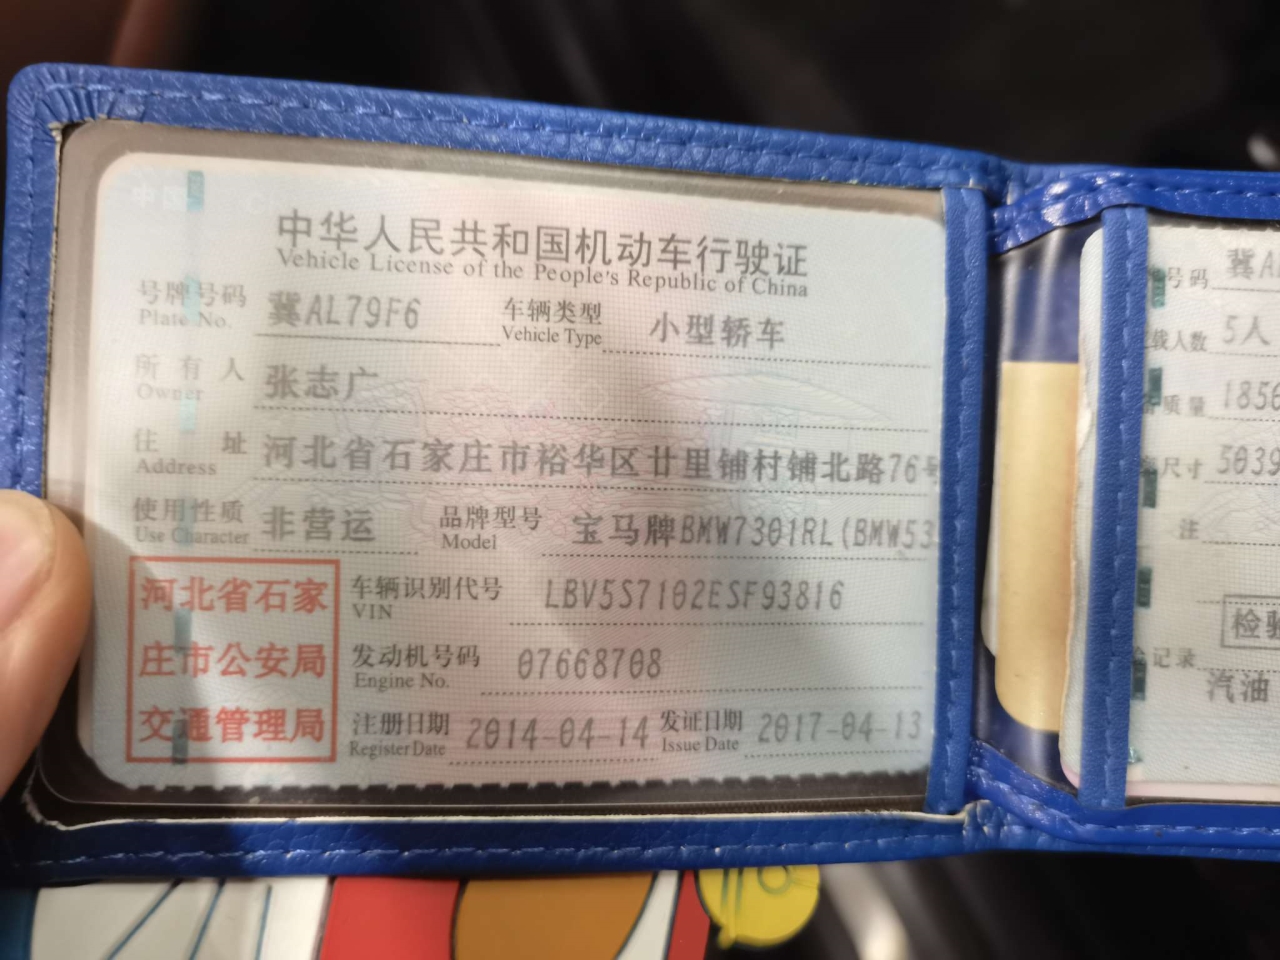 中华人民共和国机动车行驶证
Vehicle License of the People's Republic of China
号牌号码 冀AL79F6 车辆类型 小型轿车
Plate No. Vehicle Type
所有人 张志广
Owner
住址 河北省石家庄市裕华区廿里铺村铺北路76号
Address
使用性质 非营运 品牌型号 宝马牌BMW7301RL(BMW53
Use Character Model
河北省石家
庄市公安局
交通管理局
车辆识别代号 LBV5S7102ESF93816
VIN
发动机号码 07668708
Engine No.
注册日期 2014-04-14 发证日期 2017-04-13
Register Date Issue Date
号码 冀A
载人数 5人
质量 1856
尺寸 5039
注
检验
记录
汽油